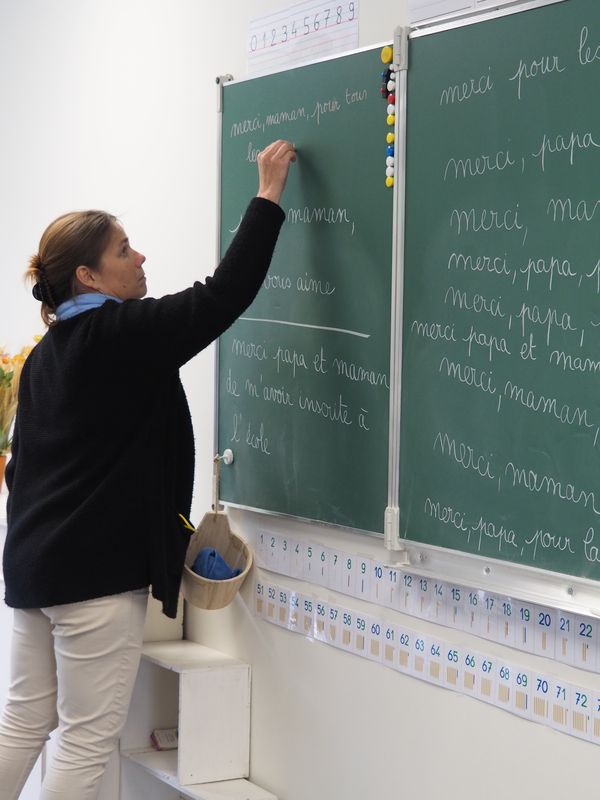 0 1 2 3 4 5 6 7 8 9
merci, maman, pour tous
les
maman,
vous aime
merci papa et maman
de m'avoir inscrite à
l'école
merci pour les
merci, papa
merci,
merci, papa,
merci, papa,
merci papa et mam
merci, maman,
merci, maman
merci, papa, pour la
1 2 3 4 5 6 7 8 9 10 11 12 13 14 15 16 17 18 19 20 21 22
51 52 53 54 55 56 57 58 59 60 61 62 63 64 65 66 67 68 69 70 71 72